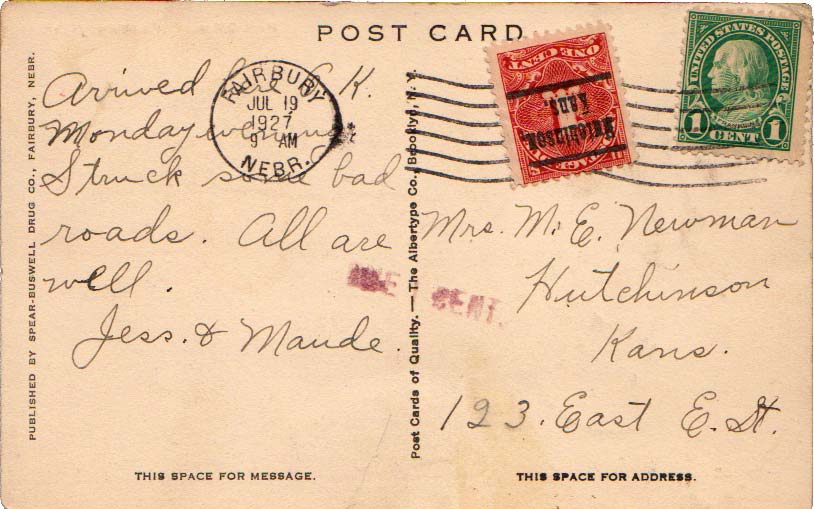 POST CARD
PUBLISHED BY SPEAR-BUSWELL DRUG CO., FAIRBURY, NEBR.
Arrived here O.K.
Monday evening
Struck some bad
roads. All are
well.
Jess. & Maude.
THIS SPACE FOR MESSAGE.
FAIRBURY
JUL 19
1927
9 AM
NEBR.
Post Cards of Quality. — The Albertype Co., Brooklyn, N. Y.
ONE CENT
Hutchinson
Kans.
UNITED STATES POSTAGE
1 CENT 1
DUE CENT.
Mrs. M. E. Newman
Hutchinson
Kans.
123. East E. St.
THIS SPACE FOR ADDRESS.